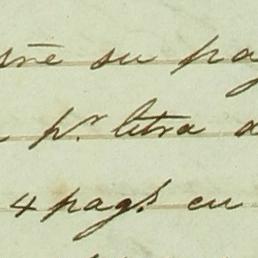 su pa
pr. letra
4 pags. en